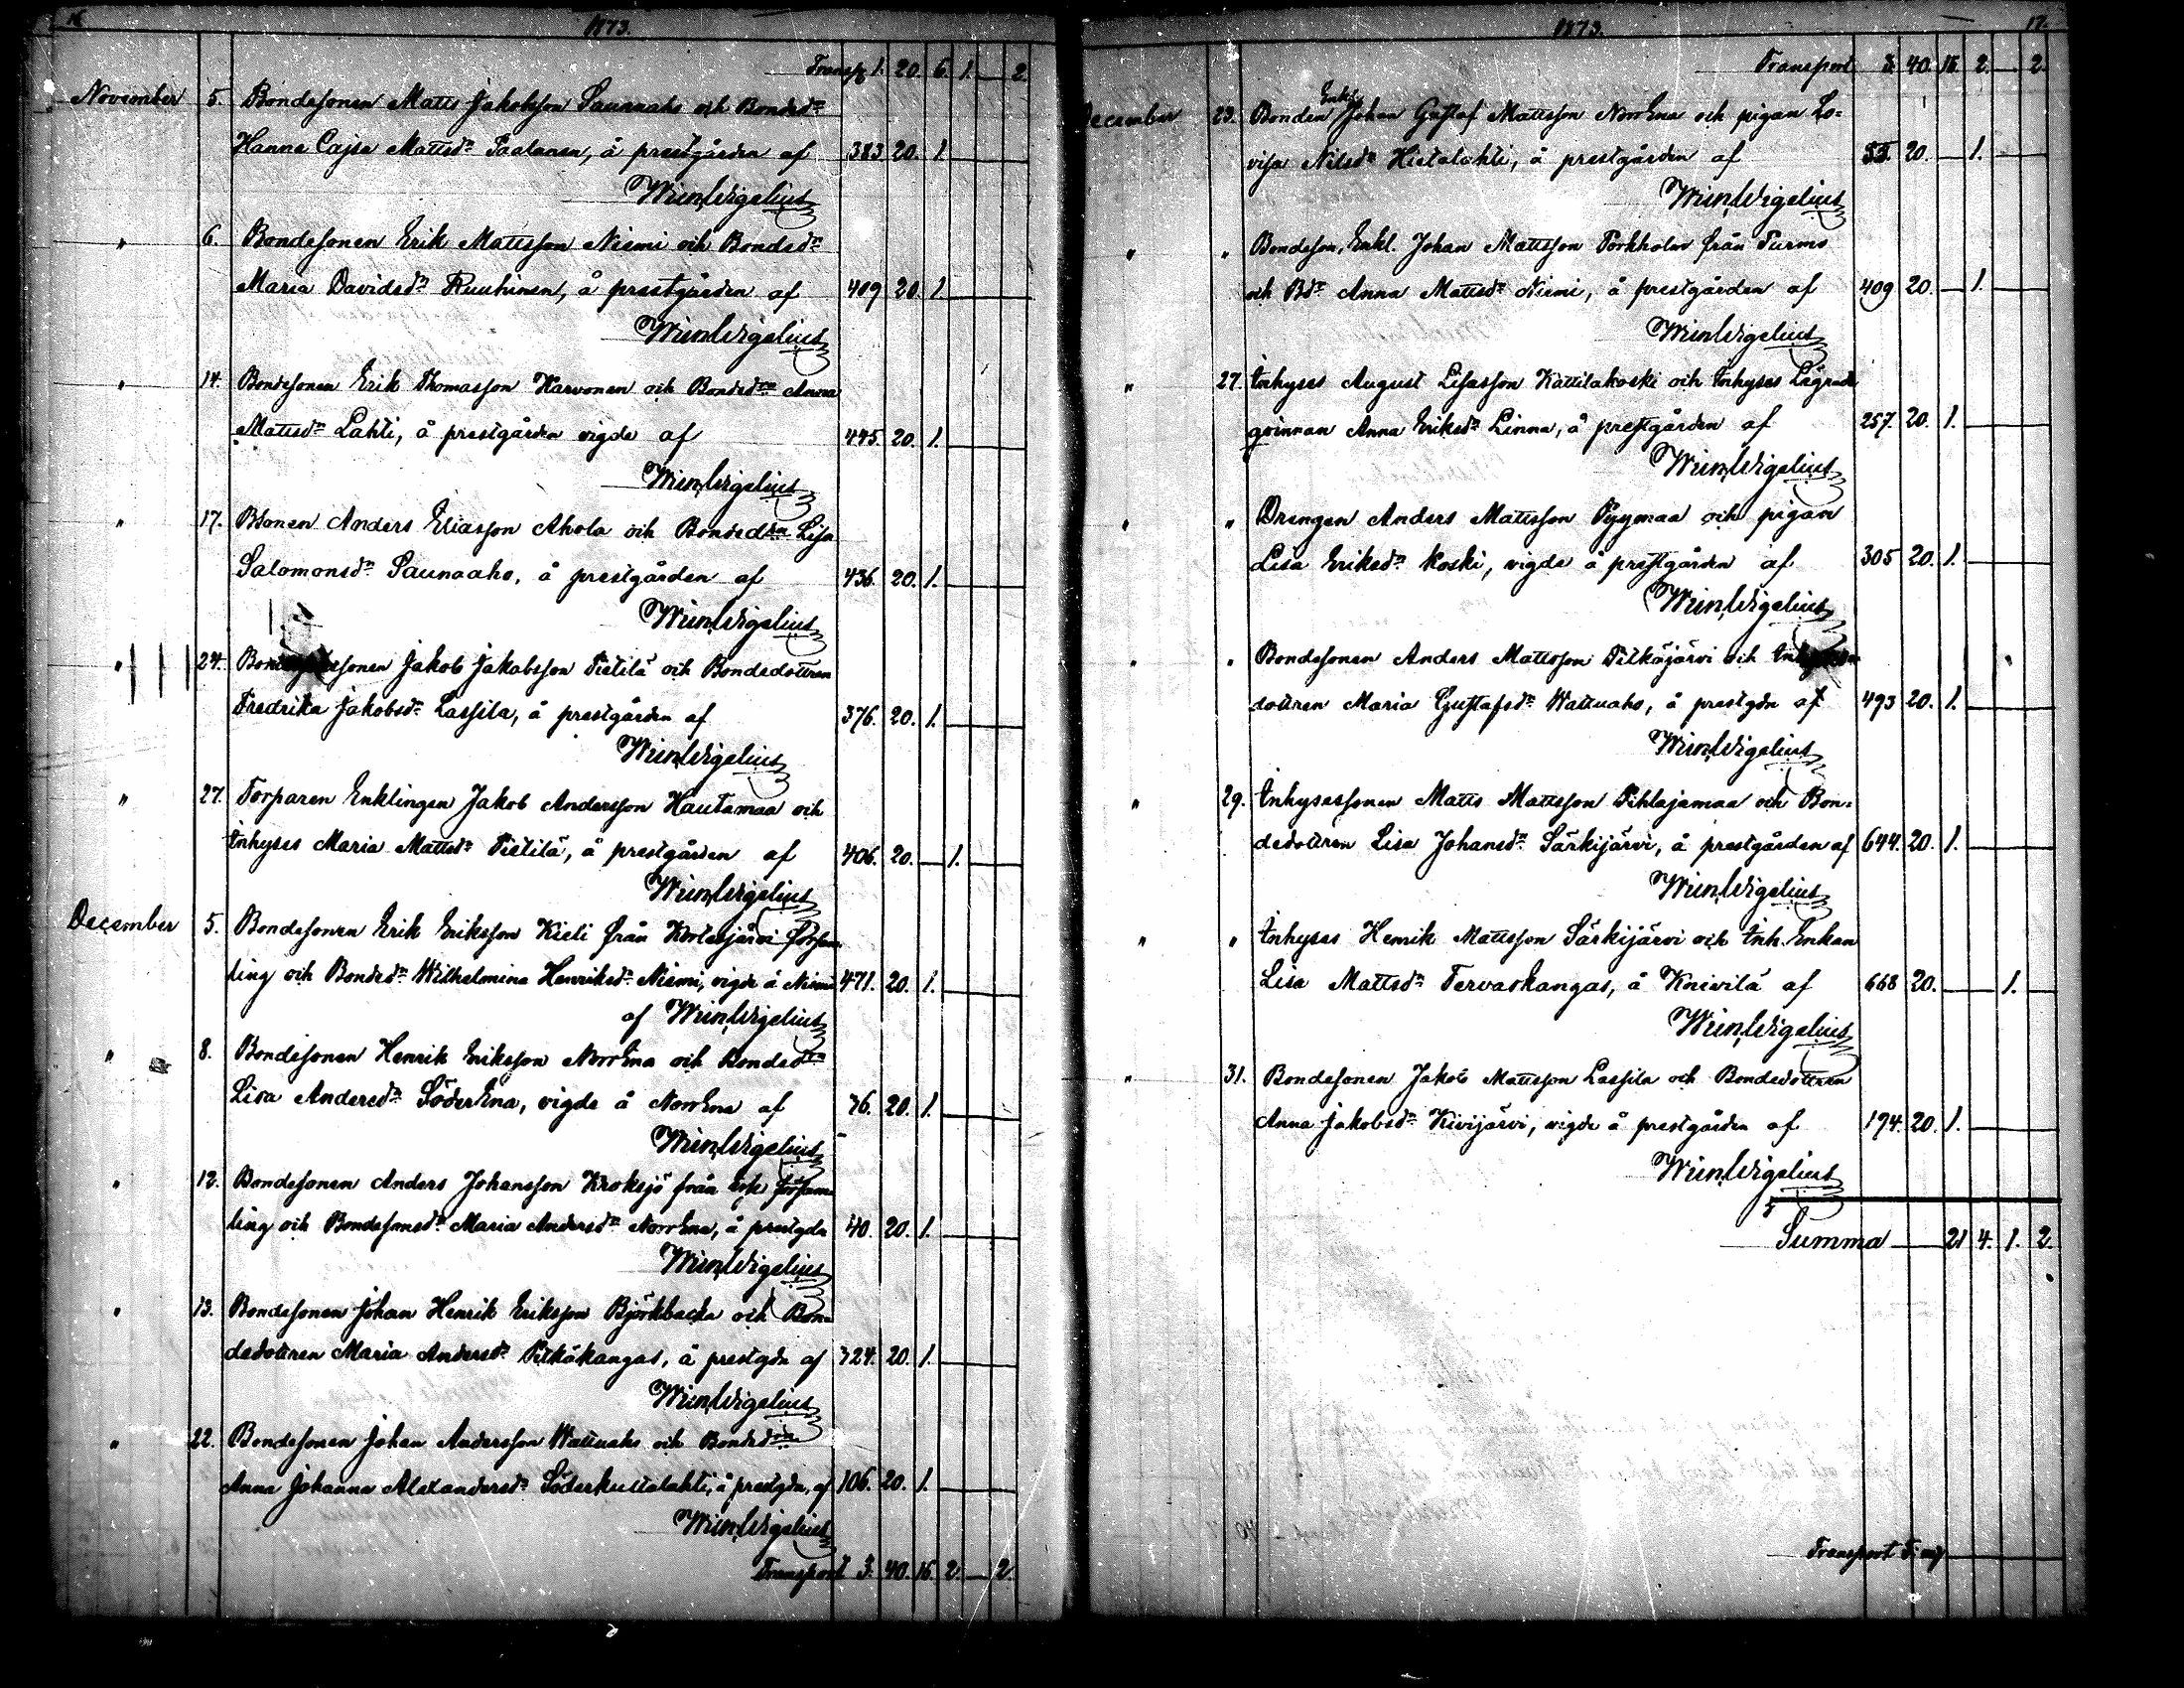 16 1873.
Transp. 1. 20. 6. 1. — 2.
November 5. Bondesonen Matts Jakobsson Saunaaho och Bondedn
Hanna Cajsa Mattsdr Paalanen, å prestgården af 383 20. 1.
Wm Wigelius
" 6. Bondesonen Erik Mattsson Niemi och Bondedn
Maria Davidsdr Ruuhinen, å prestgården af 409 20. 1.
Wm Wigelius
" 14. Bondesonen Erik Thomasson Harvonen och Bondedn Anna
Mattsdr Lahti, å prestgården vigde af 445 20. 1.
Wm Wigelius
" 17. Bsonen Anders Eliasson Ahola och Bondedn Lisa
Salomonsdr Saunaaho, å prestgården af 436. 20. 1.
Wm Wigelius
" 24. Bondesonen Jakob Jakobsson Pietilä och Bondedottren
Fredrika Jakobsdr Lassila, å prestgården af 376. 20. 1.
Wm Wigelius
" 27. Torparen Enklingen Jakob Andersson Hautamaa och
Inhyses Maria Mattsdr Pietilä, å prestgården af 406. 20. — 1.
Wm Wigelius
December 5. Bondesonen Erik Eriksson Kieli från Kortesjärvi Försam
ling och Bondedn Wilhelmina Henriksdr Niemi, vigde å Niemi 471. 20. 1.
af Wm Wigelius
" 8. Bondesonen Henrik Eriksson NorrEna och Bondedn
Lisa Andersdr SöderEna, vigde å NorrEna af 76. 20. 1.
Wm Wigelius
" 12. Bondesonen Anders Johansson Kroksjö från försam
ling och Bondesonsdr Maria Andersdr NorrEna, å prestgdn 40. 20. 1.
Wm Wigelius
" 13. Bondesonen Johan Henrik Eriksson Björkbacka och Bon
dedottren Maria Andersdr Pitkäkangas, å prestgdn af 324. 20. 1.
Wm Wigelius
" 22. Bondesonen Johan Andersson Wattuaho och Bondedn
Anna Johanna Alexandersdr Söderkultalahti, å prestgdn, af 106. 20. 1.
Wm Wigelius
Transport 3. 40. 16. 2. — 2.
1873. 17.
Transport 3. 40. 16. 2. — 2.
December 23. Bonden Enkl. Johan Gustaf Mattsson NorrEna och pigan Lo=
visa Nilsdr Hietalahti, å prestgården af 53. 20. — 1.
Wm Wigelius
" " Bondeson, Enkl. Johan Mattsson Porkholm från Purmo
och Bdr Anna Mattsdr Niemi, å prestgården af 409 20. — 1.
Wm Wigelius
" 27. Inhyses August Lisasson Kattilakoski och Inhyses Lägrade
qvinnan Anna Eriksdr Linna, å prestgården af 257. 20. 1.
Wm Wigelius
" " Drengen Anders Mattsson Pyymaa och pigan
Lisa Eriksdr Koski, vigde å prestgården af 305 20. 1.
Wm Wigelius
" " Bondesonen Anders Mattsson Pitkäjärvi och
dottren Maria Gustafsdr Wattuaho, å prestgdn af 493 20. 1.
Wm Wigelius
" 29. Inhysessonen Matts Mattsson Pihlajamaa och Bon=
dedottren Lisa Johansdr Särkijärvi, å prestgården af 644. 20. 1.
Wm Wigelius
" " Inhyses Henrik Mattsson Särkijärvi och Inh. Enkan
Lisa Mattsdr Tervaskangas, å Knivilä af 668 20. — 1.
Wm Wigelius
" 31. Bondesonen Jakob Mattsson Lassila och Bondedottren
Anna Jakobsdr Kivijärvi, vigde å prestgården af 194. 20. 1.
Wm Wigelius
Summa — 21 4. 1. 2.
Transport